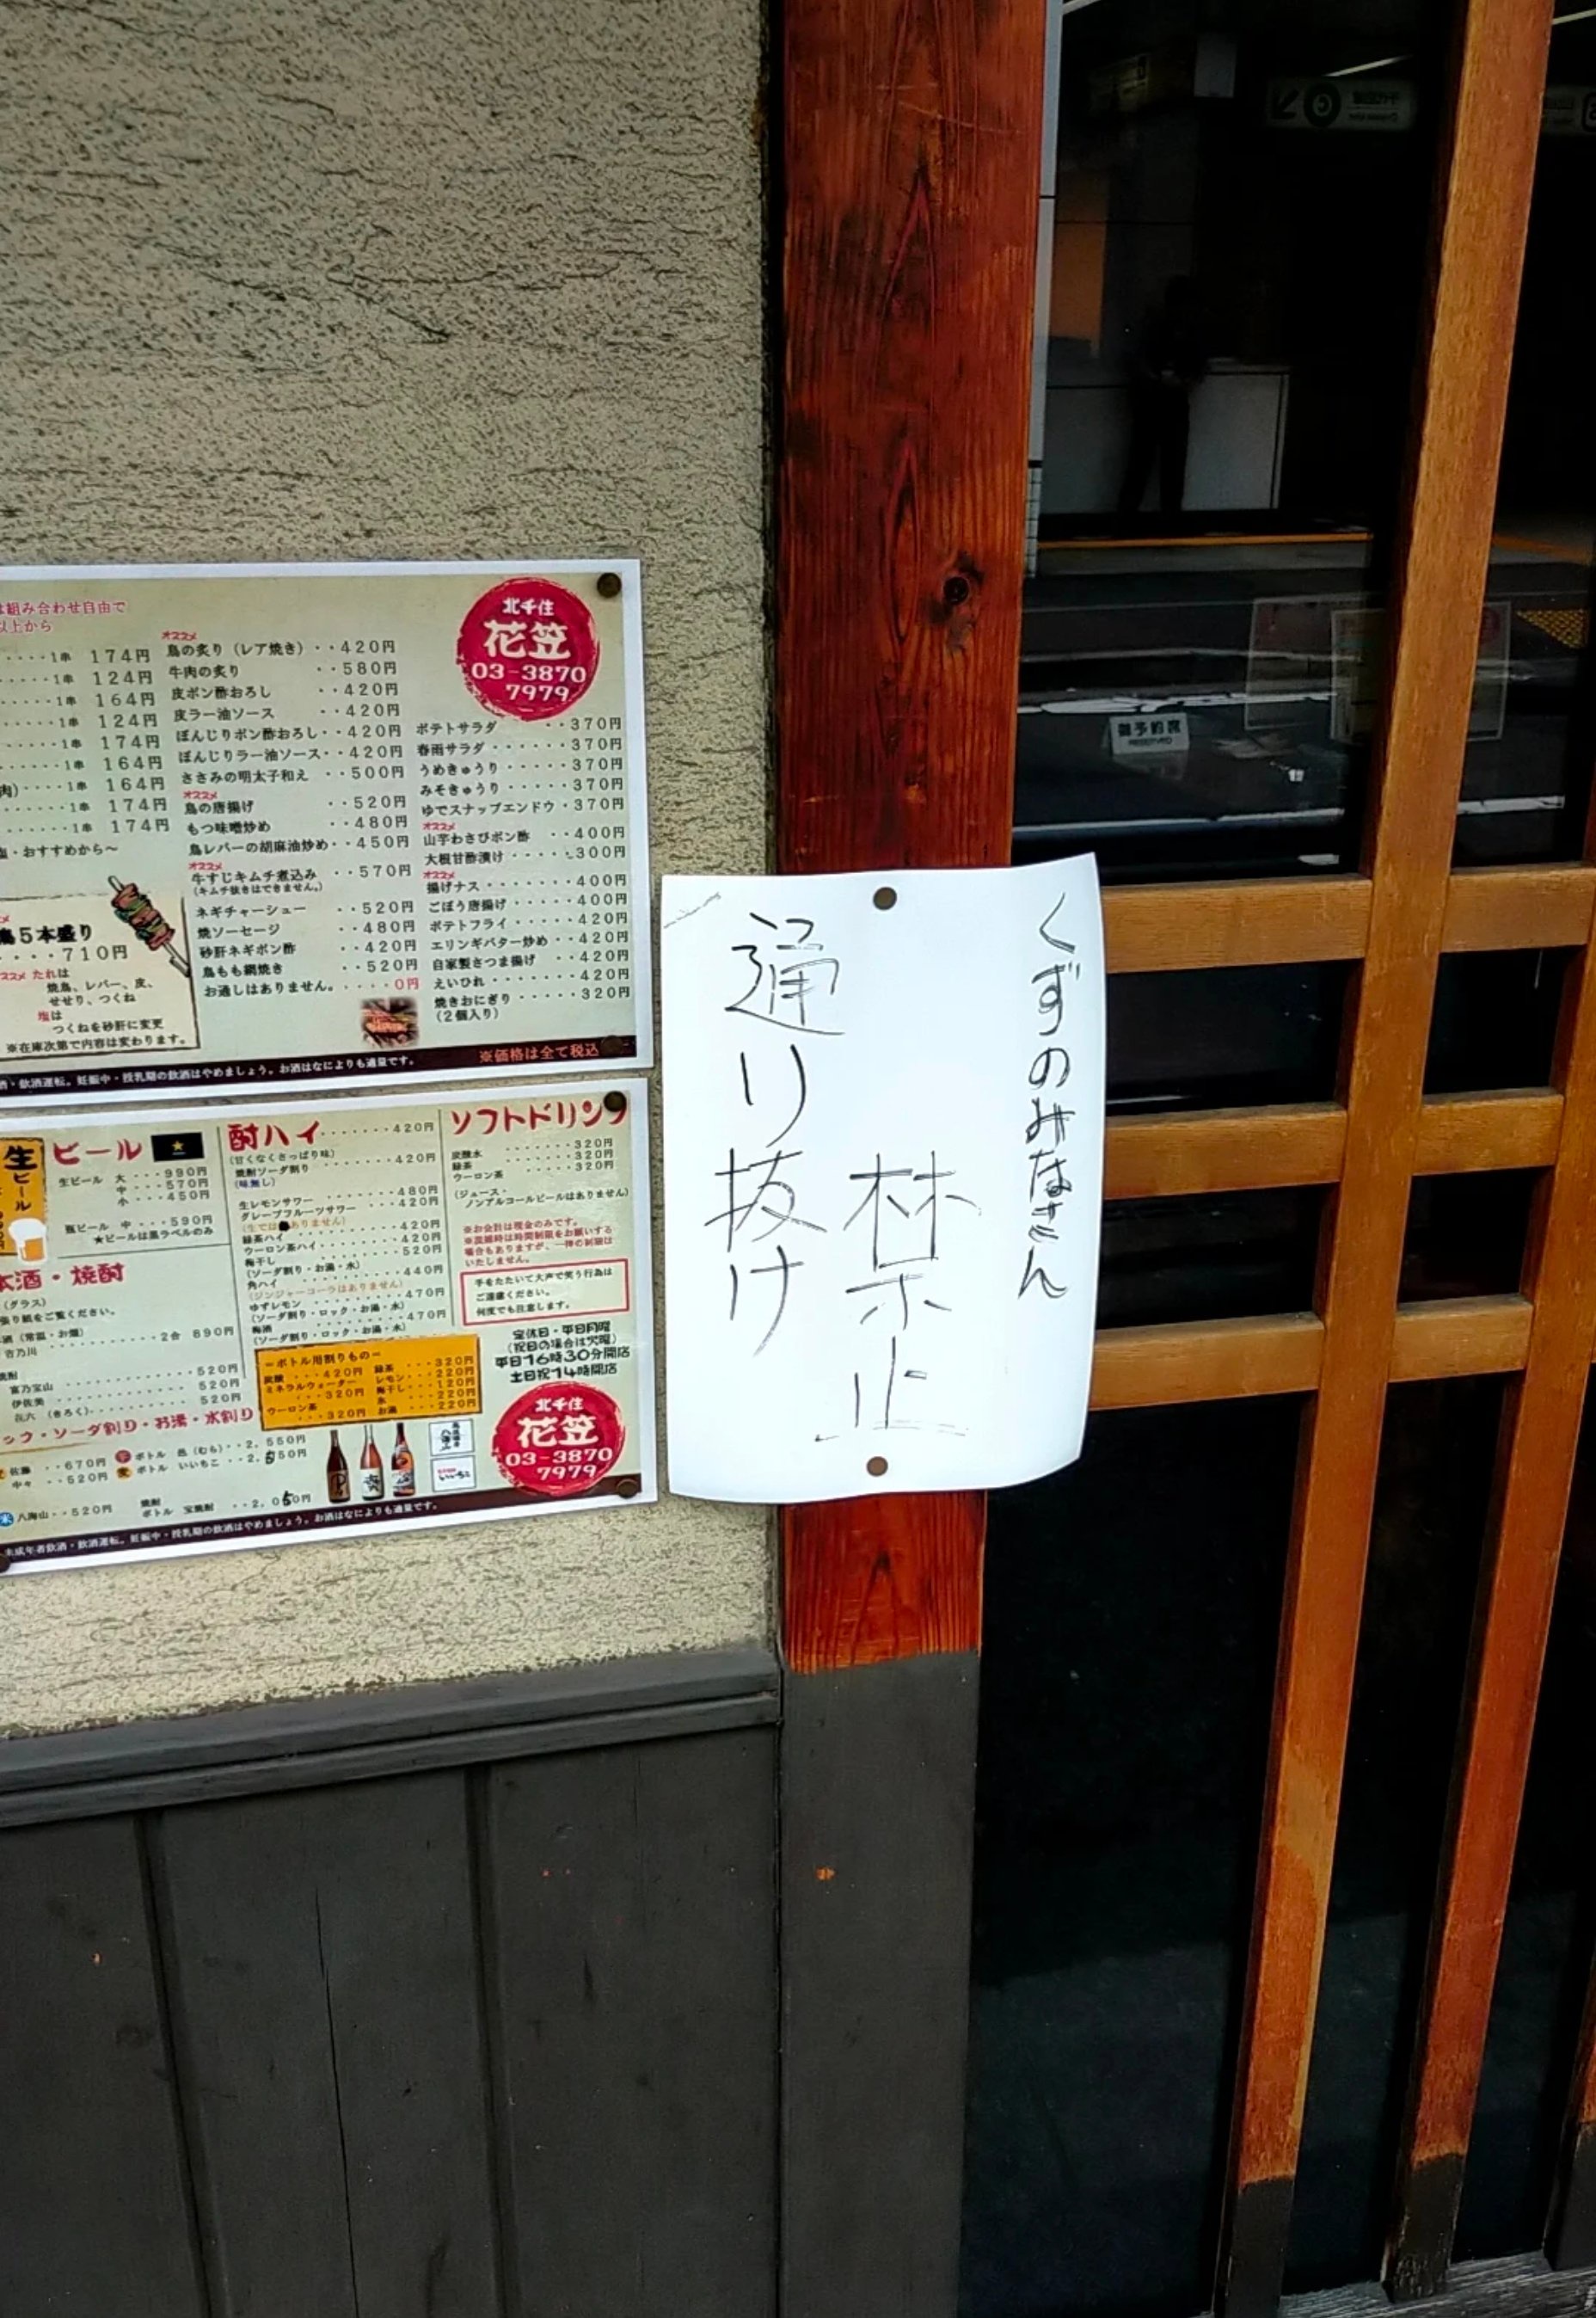 くずのみなさん
通り抜け
禁止
は組み合わせ自由で
以上から
・・・・・1串 174円
・・・・・1串 124円
・・・・・1串 164円
・・・・・1串 124円
・・・・・1串 174円
・・・・・1串 164円
肉)・・・・1串 164円
・・・・・1串 174円
・・・・・1串 174円
塩・おすすめから〜
鳥5本盛り
・・・・710円
オススメ たれは
焼鳥、レバー、皮、
せせり、つくね
塩は
つくねを砂肝に変更
※在庫次第で内容は変わります。
オススメ
鳥の炙り（レア焼き）・・420円
牛肉の炙り ・・580円
皮ポン酢おろし ・・420円
皮ラー油ソース ・・420円
ぼんじりポン酢おろし・・420円
ぼんじりラー油ソース・・420円
ささみの明太子和え ・・500円
オススメ
鳥の唐揚げ ・・520円
もつ味噌炒め ・・480円
鳥レバーの胡麻油炒め・・450円
オススメ
牛すじキムチ煮込み ・・570円
（キムチ抜きはできません。）
ネギチャーシュー ・・520円
焼ソーセージ ・・480円
砂肝ネギポン酢 ・・420円
鳥もも網焼き ・・520円
お通しはありません。・・・・0円
北千住
花笠
03-3870
7979
ポテトサラダ ・・370円
春雨サラダ・・・・・・370円
うめきゅうり・・・・・370円
みそきゅうり・・・・・370円
ゆでスナップエンドウ・370円
オススメ
山芋わさびポン酢 ・・400円
大根甘酢漬け・・・・・300円
オススメ
揚げナス・・・・・・・400円
ごぼう唐揚げ・・・・・400円
ポテトフライ・・・・・420円
エリンギバター炒め・・420円
自家製さつま揚げ ・・420円
えいひれ・・・・・・・420円
焼きおにぎり・・・・・320円
（2個入り）
酒・飲酒運転。妊娠中・授乳期の飲酒はやめましょう。お酒はなによりも適量です。
※価格は全て税込
生ビール
ビール
生ビール 大・・・990円
中・・・570円
小・・・450円
瓶ビール 中・・・590円
★ビールは黒ラベルのみ
本酒・焼酎
（グラス）
張り紙をご覧ください。
酒（常温・お燗）
吉乃川 ・・・・・・・・2合 890円
焼酎
富乃宝山 ・・・・・・・520円
伊佐美 ・・・・・・・520円
㐂六（きろく）・・・・・520円
ック・ソーダ割り・お湯・水割り
佐藤 ・・670円
中々 ・・520円
芋 ボトル 邑（むら）・・2,550円
麦 ボトル いいちこ ・・2,550円
米 八海山・・520円
焼酎
ボトル 宝焼酎 ・・2,050円
酎ハイ・・・・・・・420円
（甘くなくさっぱり味）
焼酎ソーダ割り ・・・・・・420円
（味無し）
生レモンサワー ・・・・・・480円
グレープフルーツサワー ・・・・420円
（生ではありません）
緑茶ハイ ・・・・・・420円
ウーロン茶ハイ・・・・・・420円
梅干し ・・・・・・520円
（ソーダ割り・お湯・水）
角ハイ ・・・・・・440円
（ジンジャーコーラはありません）
ゆずレモン ・・・・・・470円
（ソーダ割り・ロック・お湯・水）
梅酒 ・・・・・・470円
（ソーダ割り・ロック・お湯・水）
＝ボトル用割りもの＝
炭酸 ・・・420円
ミネラルウォーター
・・・320円
ウーロン茶
・・・320円
緑茶 ・・・320円
レモン・・・220円
梅干し・・・120円
氷 ・・・220円
お湯 ・・・220円
ソフトドリンク
炭酸水 ・・・・・・320円
緑茶 ・・・・・・320円
ウーロン茶 ・・・・・320円
（ジュース・
ノンアルコールビールはありません）
※お会計は現金のみです。
※混雑時は時間制限をお願いする
場合もありますが、一律の制限は
いたしません。
手をたたいて大声で笑う行為は
ご遠慮ください。
何度でも注意します。
定休日・平日月曜
（祝日の場合は火曜）
平日16時30分開店
土日祝14時開店
いいちこ
北千住
花笠
03-3870
7979
未成年者飲酒・飲酒運転。妊娠中・授乳期の飲酒はやめましょう。お酒はなによりも適量です。
御予約席
RESERVED